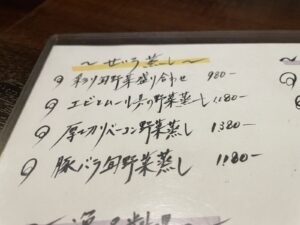 ～せいろ蒸し～
彩り旬野菜盛り合わせ 980-
エビとムール貝の野菜蒸し 1180-
厚切りベーコン野菜蒸し 1380-
豚バラ旬野菜蒸し 1180-